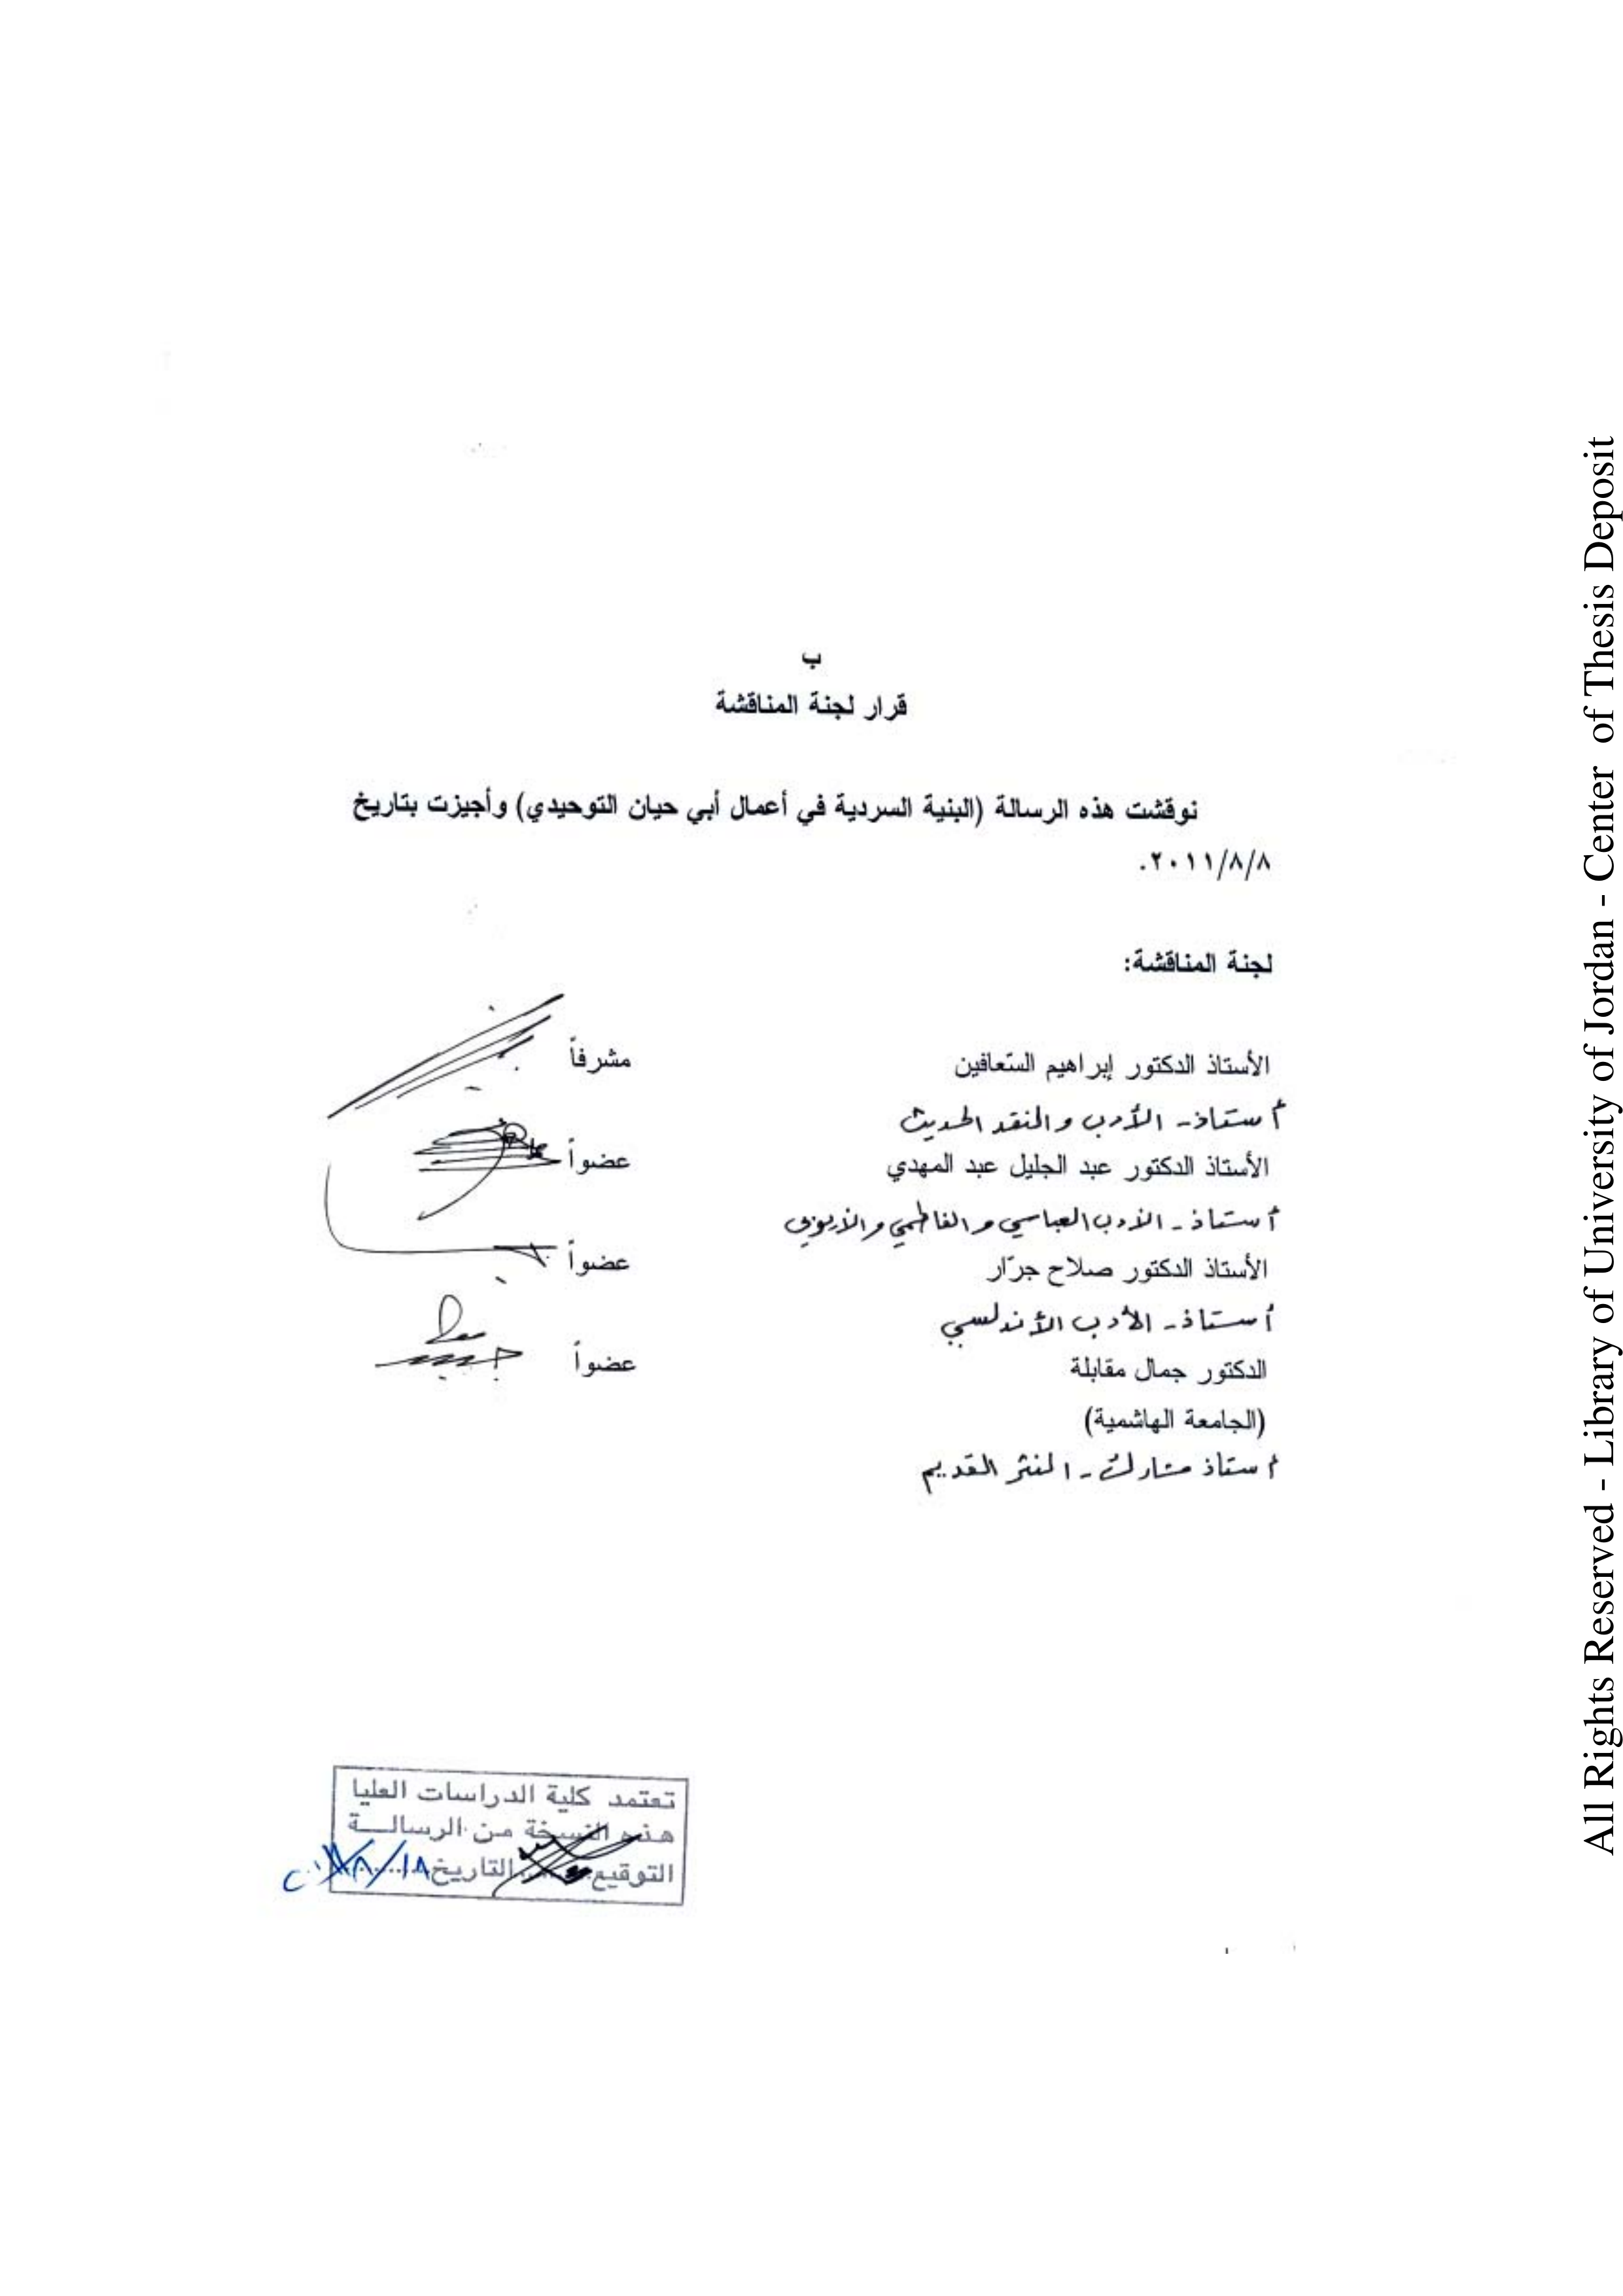 ب
قرار لجنة المناقشة
نوقشت هذه الرسالة (البنية السردية في أعمال أبي حيان التوحيدي) وأجيزت بتاريخ
٢٠١١/٨/٨.
لجنة المناقشة:
الأستاذ الدكتور إبراهيم السّعافين مشرفاً
أستاذ - الأدب والنقد الحديث
الأستاذ الدكتور عبد الجليل عبد المهدي عضواً
أستاذ - الأدب العباسي والفاطمي والأيوبي
الأستاذ الدكتور صلاح جرّار عضواً
أستاذ - الأدب الأندلسي
الدكتور جمال مقابلة عضواً
(الجامعة الهاشمية)
أستاذ مشارك - النثر القديم
تعتمد كلية الدراسات العليا
هذه النسخة من الرسالــة
التوقيع التاريخ
All Rights Reserved - Library of University of Jordan - Center of Thesis Deposit